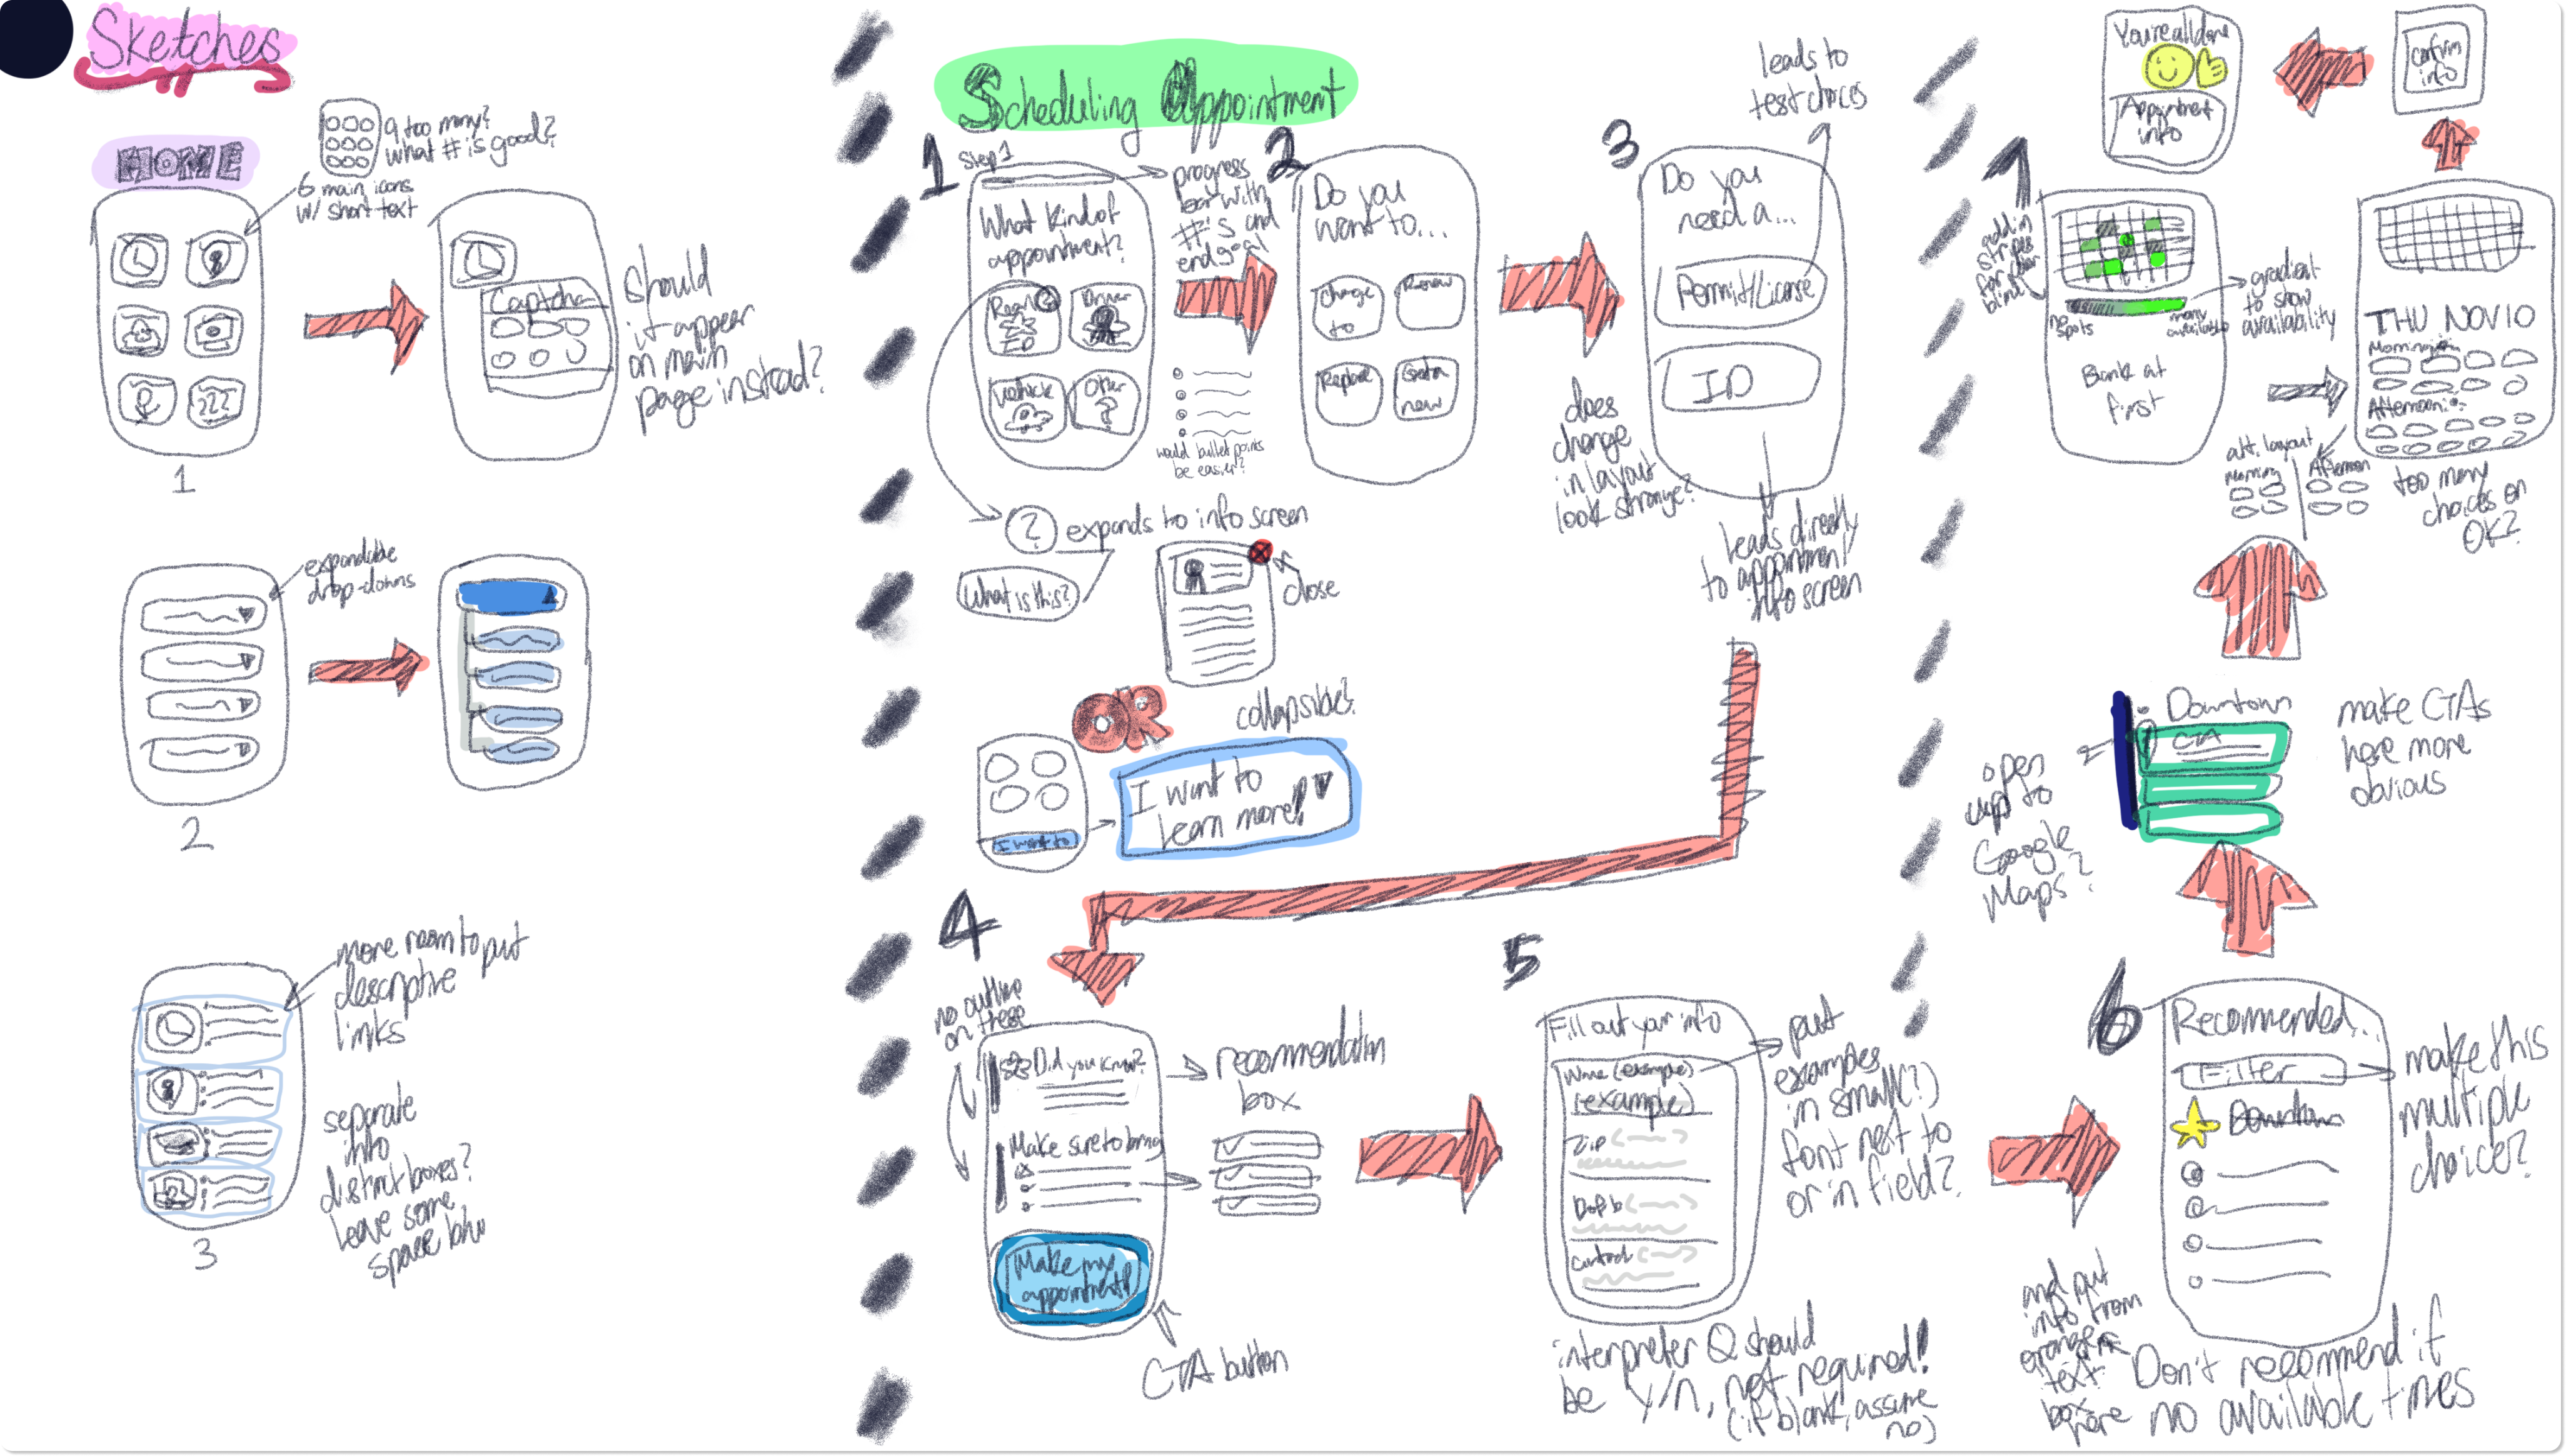 Sketches
HOME
9 too many?
what # is good?
6 main icons
w/ short text
Captcha
should
it appear
on main
page instead?
???
1
expandable
drop-downs
2
more room to put
descriptive
links
separate
into
distinct boxes?
leave some
space btw
3
Scheduling Appointment
1
Step 1
What kind of
appointment?
Real
ID
?
Driver
Vehicle
Other
?
progress
bar with
#'s and
end goal
would bullet points
be easier?
? expands to info screen
What is this?
close
OR
collapsible?
I want to
I want to
learn more!
2
Do you
want to...
Change
to
Renew
Replace
Get a
new
3
Do you
need a...
Permit/License
ID
leads to
test choices
does
change
in layout
look strange?
leads directly
to appointment
info screen
4
no outline
on these
Did you know?
Make sure to bring
Make my
appointment!
recommendation
box
CTA button
5
Fill out your info
Name (example)
(example)
Zip
D of b
Contact
put
examples
in small(?)
font next to
or in field?
interpreter Q should
be y/n, not required!
(if blank, assume
no)
6
Recommended...
Filter
Downtown
make this
multiple
choice?
and put
info from
orange
text
box
here
Don't recommend if
no available times
Downtown
CTA
make CTAs
here more
obvious
open
up to
Google
Maps?
7
add in
stripes
for color
blind
no
spots
many
available
gradient
to show
availability
Blank at
first
THU NOV 10
Morning
Afternoon
alt. layout
Morning
Afternoon
too many
choices or
OK?
confirm
info
You're all done
Appointment
info